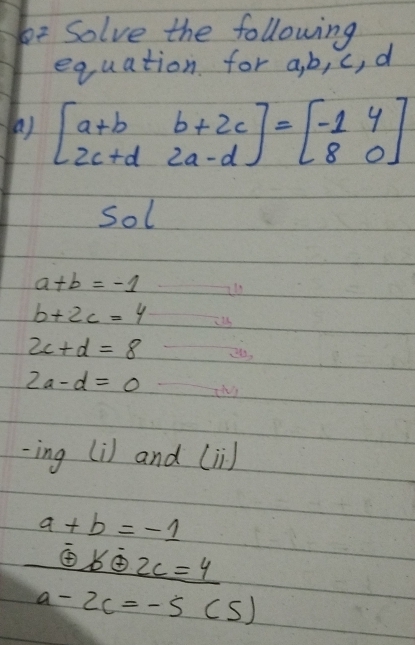 Q2 Solve the following
equation for a,b,c,d
a) [a+b b+2c] = [-1 4]
[2c+d 2a-d] [8 0]
Sol
a+b = -1 (i)
b+2c = 4 (ii)
2c+d = 8 (iii)
2a-d = 0 (iv)
-ing (i) and (ii)
a + b = -1
b 2c = 4
a - 2c = -5 (5)